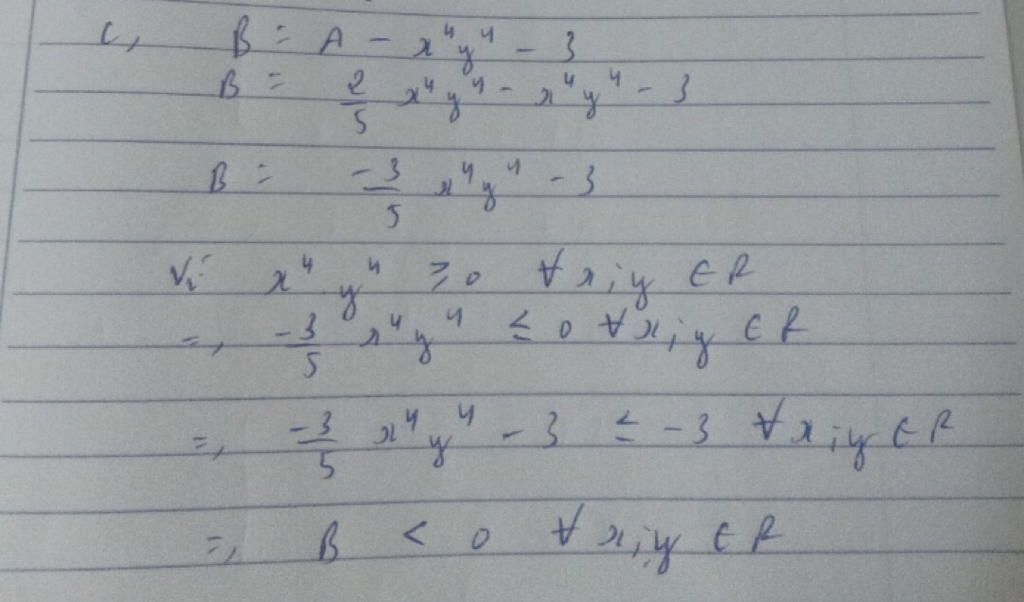 c, B = A - x⁴y⁴ - 3
B = 2/5 x⁴y⁴ - x⁴y⁴ - 3
B = -3/5 x⁴y⁴ - 3
Vì x⁴.y⁴ ≥ 0 ∀ x;y ∈ R
=, -3/5 x⁴y⁴ ≤ 0 ∀ x;y ∈ R
=, -3/5 x⁴y⁴ - 3 ≤ -3 ∀ x;y ∈ R
=, B < 0 ∀ x;y ∈ R